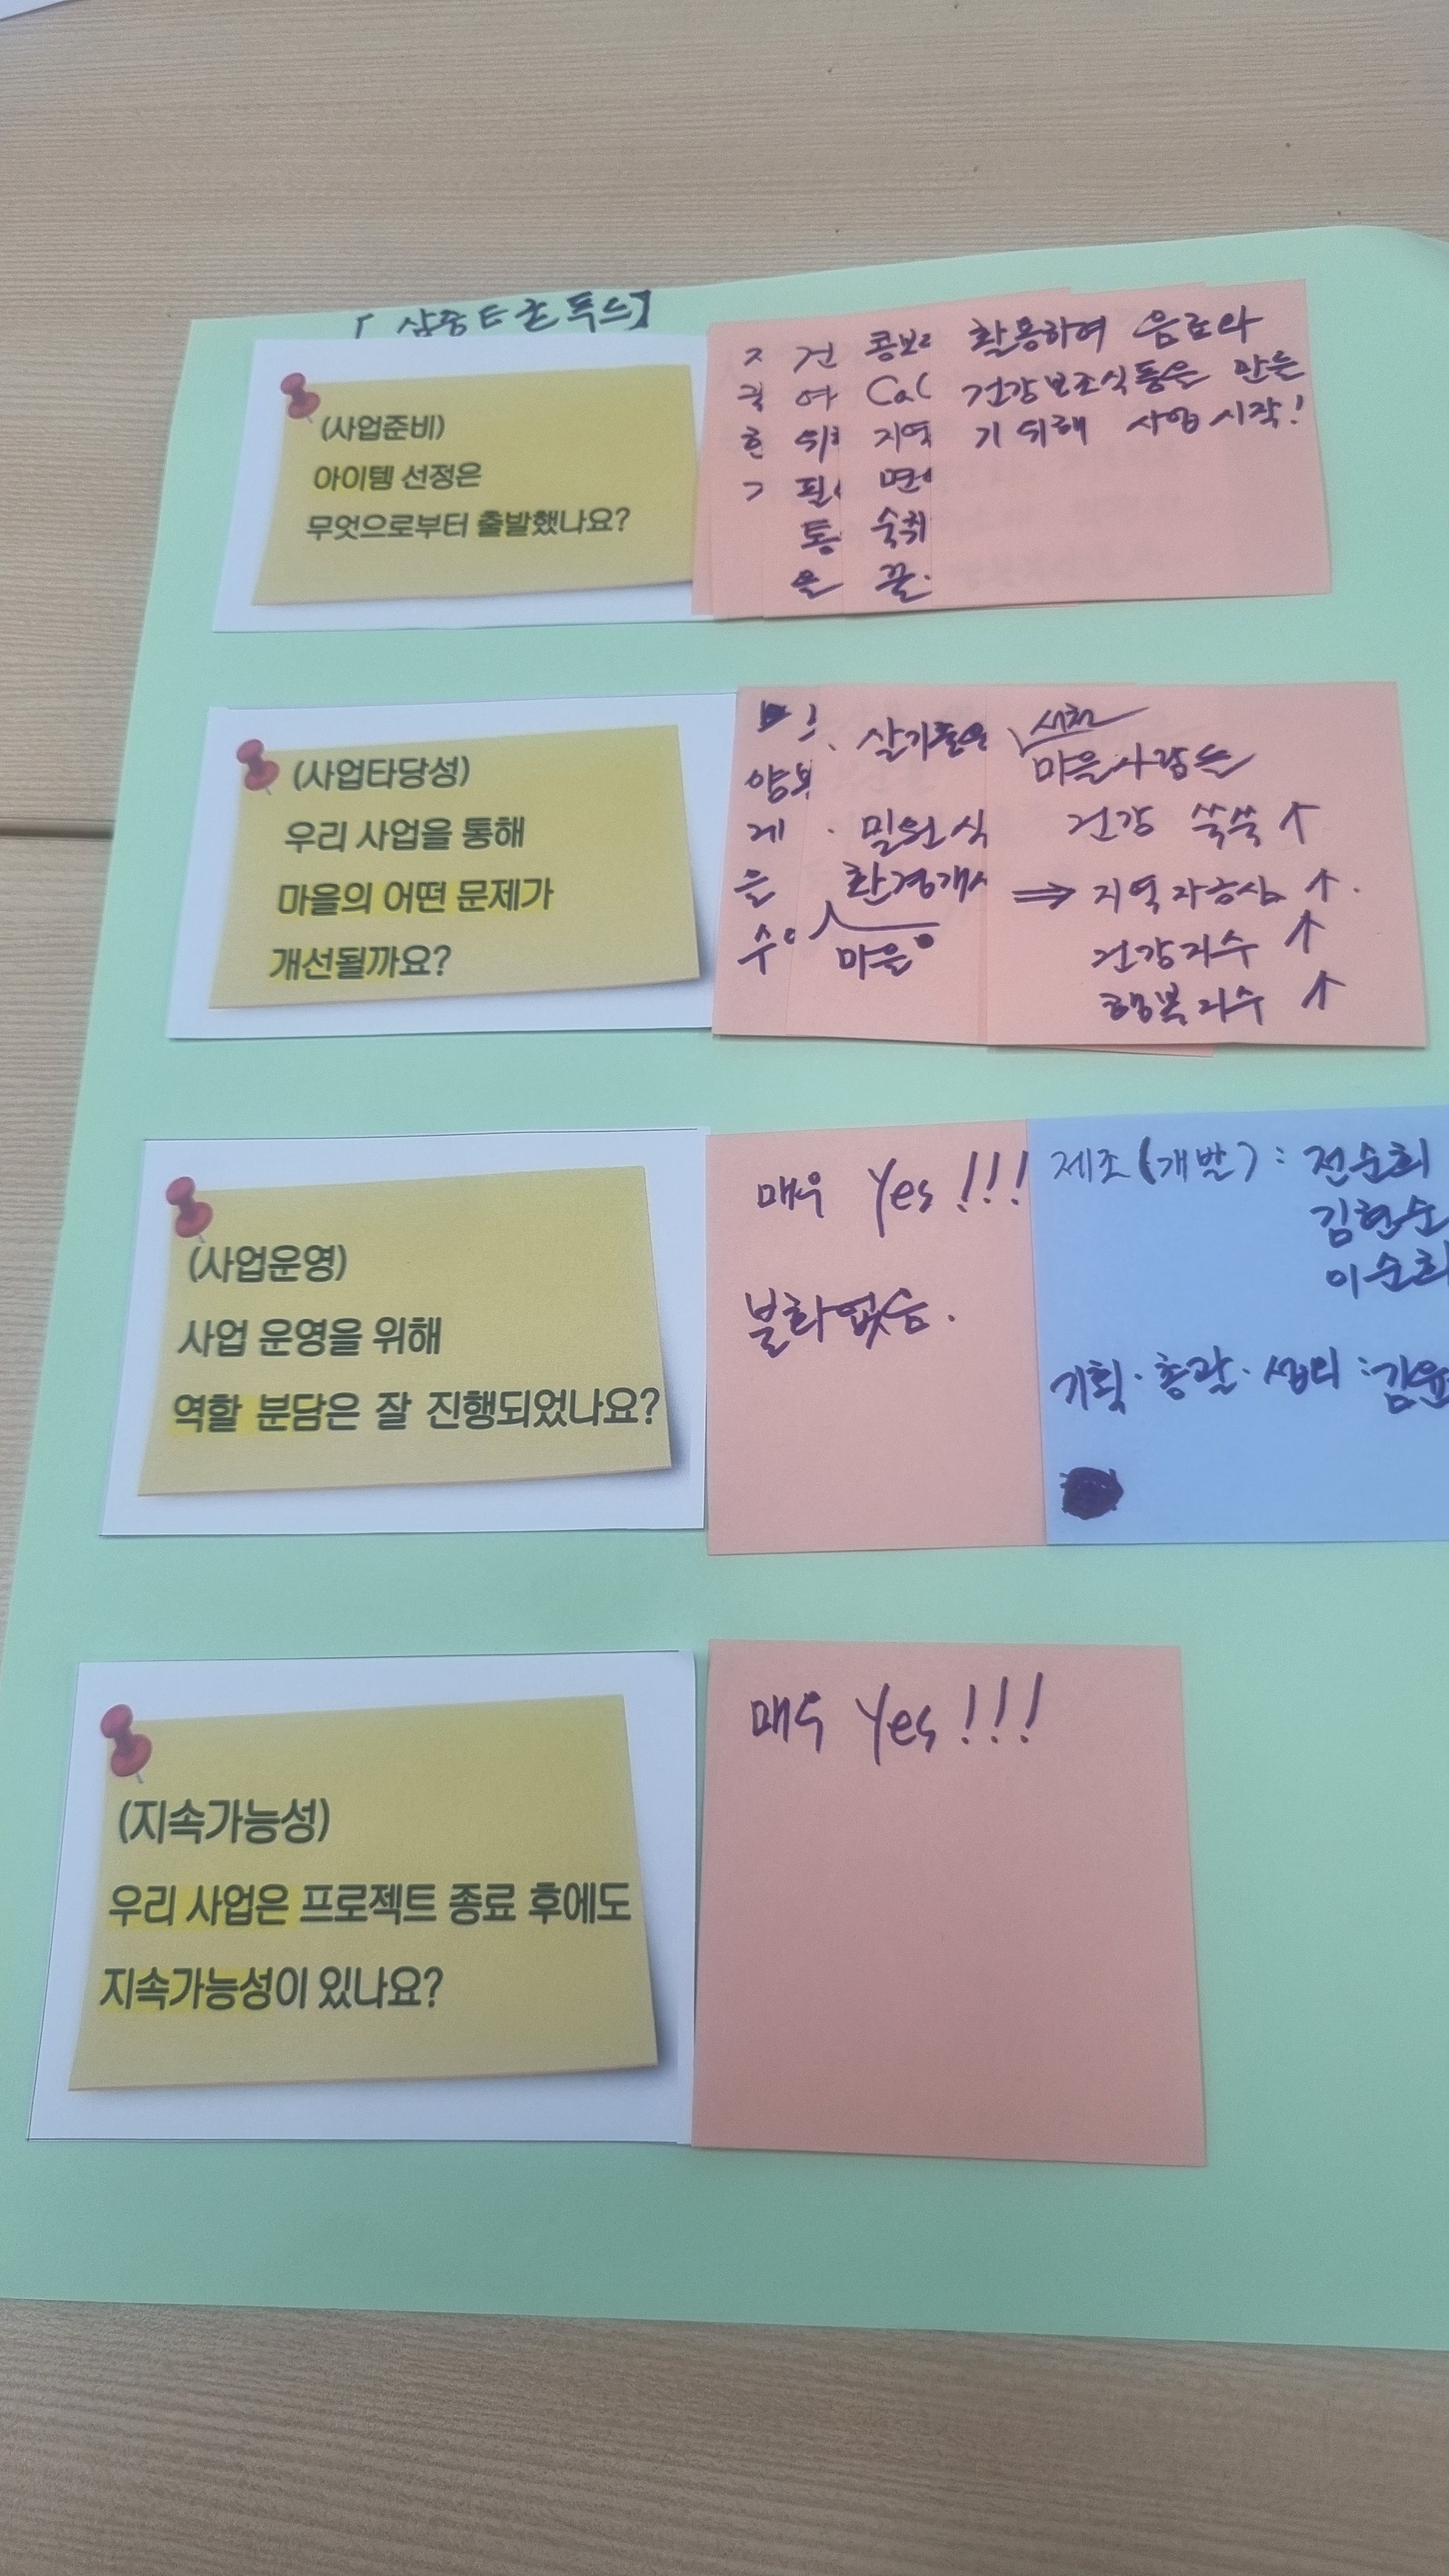 (사업준비)
아이템 선정은
무엇으로부터 출발했나요?
콩보
Ca
지역
숙취
끝.
활용하여 음료와
건강보조식품을 만들
기 위해 사업 시작!
(사업타당성)
우리 사업을 통해
마을의 어떤 문제가
개선될까요?
살기좋은
밀원식
환경개
마을
서천
마을사람들
건강 쑥쑥 ↑
⇒ 지역자긍심 ↑.
건강지수 ↑
행복지수 ↑
(사업운영)
사업 운영을 위해
역할 분담은 잘 진행되었나요?
매우 Yes!!!
불화없슴.
제조(개발): 전순희
김현순
이순희
기획·총괄·섭외: 김윤
(지속가능성)
우리 사업은 프로젝트 종료 후에도
지속가능성이 있나요?
매우 Yes!!!